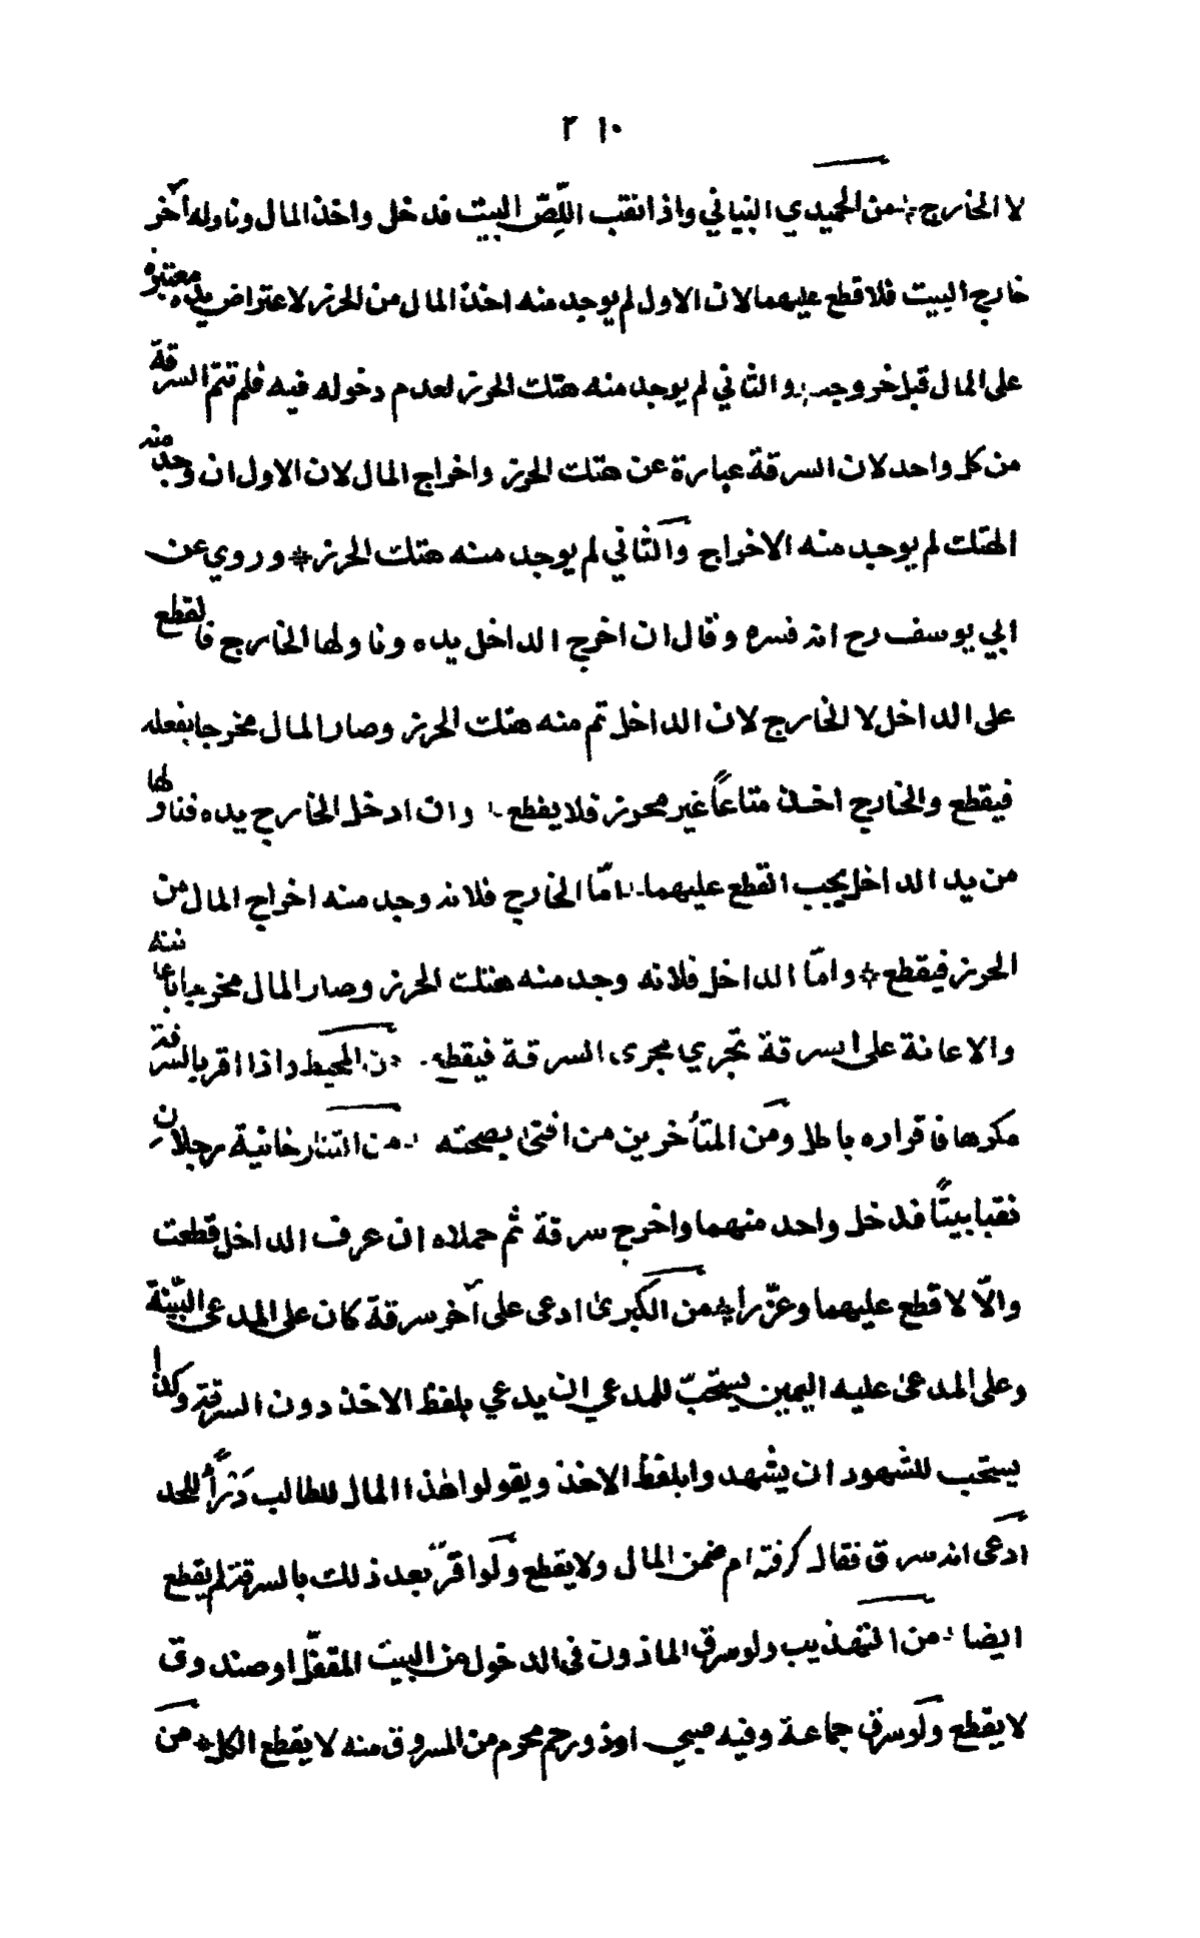 ٢١٠
لا الخارج * من الحميدي النياني واذا نقب اللّصّ البيت فدخل واخذ المال وناوله آخر
خارج البيت فلا قطع عليهما لان الاول لم يوجد منه اخذ المال من الحرز لاعتراض يده معتبرة
على المال قبل خروجه * والثاني لم يوجد منه هتك الحرز لعدم دخوله فيه فلم تتمّ السرقة
من كل واحد لان السرقة عبارة عن هتك الحرز واخراج المال لان الاول ان وجد منه
الهتك لم يوجد منه الاخراج والثاني لم يوجد منه هتك الحرز * وروي عن
ابي يوسف رح انه فسره وقال ان اخرج الداخل يده وناولها الخارج فالقطع
على الداخل لا الخارج لان الداخل تم منه هتك الحرز وصار المال مخرجا بفعله
فيقطع والخارج اخذ متاعاً غير محرز فلا يقطع * وان ادخل الخارج يده فناولها
من يد الداخل يجب القطع عليهما * امّا الخارج فلانه وجد منه اخراج المال من
الحرز فيقطع * وامّا الداخل فلانه وجد منه هتك الحرز وصار المال مخرجا باعانته
والاعانة على السرقة تجري مجرى السرقة فيقطع * من المحيط واذا اقر بالسرقة
مكرها فاقراره باطل ومن المتأخرين من افتى بصحته * من التتارخانية رجلان
نقبا بيتاً فدخل واحد منهما واخرج سرقة ثم حملاه ان عرف الداخل قطعت
والّا لا قطع عليهما وعزّرا * من الكبرى ادعى على آخر سرقة كان على المدعي البيّنة
وعلى المدعى عليه اليمين يستحبّ للمدعي ان يدعي بلفظ الاخذ دون السرقة وكذا
يستحب للشهود ان يشهدوا بلفظ الاخذ ويقولوا هذا المال للطالب دَرْأً للحد
ادعى انه سرق فقال كرفته ام ضمن المال ولا يقطع ولو اقرّ بعد ذلك بالسرقة لم يقطع
ايضا * من التهذيب ولو سرق الماذون في الدخول من البيت المقفّل او صندوق
لا يقطع ولو سرق جماعة وفيه صبي اوذو رحم محرم من المسروق منه لا يقطع الكل * من